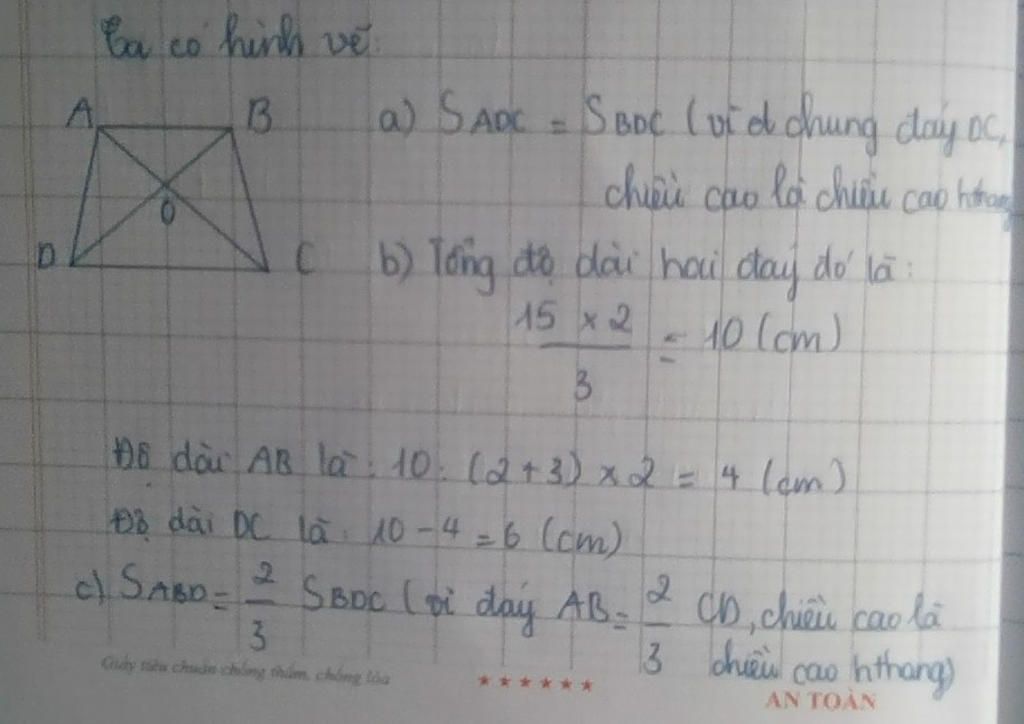 Ta có hình vẽ:
A B
O
D C
a) SADC = SBDC (vì đ chung đáy DC,
chiều cao là chiều cao hthang
b) Tổng độ dài hai đáy đó là:
15 × 2 / 3 = 10 (cm)
Độ dài AB là: 10 : (2 + 3) × 2 = 4 (cm)
Độ dài DC là: 10 - 4 = 6 (cm)
c) SABD = 2/3 SBDC (vì đáy AB = 2/3 CD, chiều cao là
chiều cao hthang)
Giấy tiêu chuẩn chống thấm, chống lóa
★★★★★★
AN TOÀN